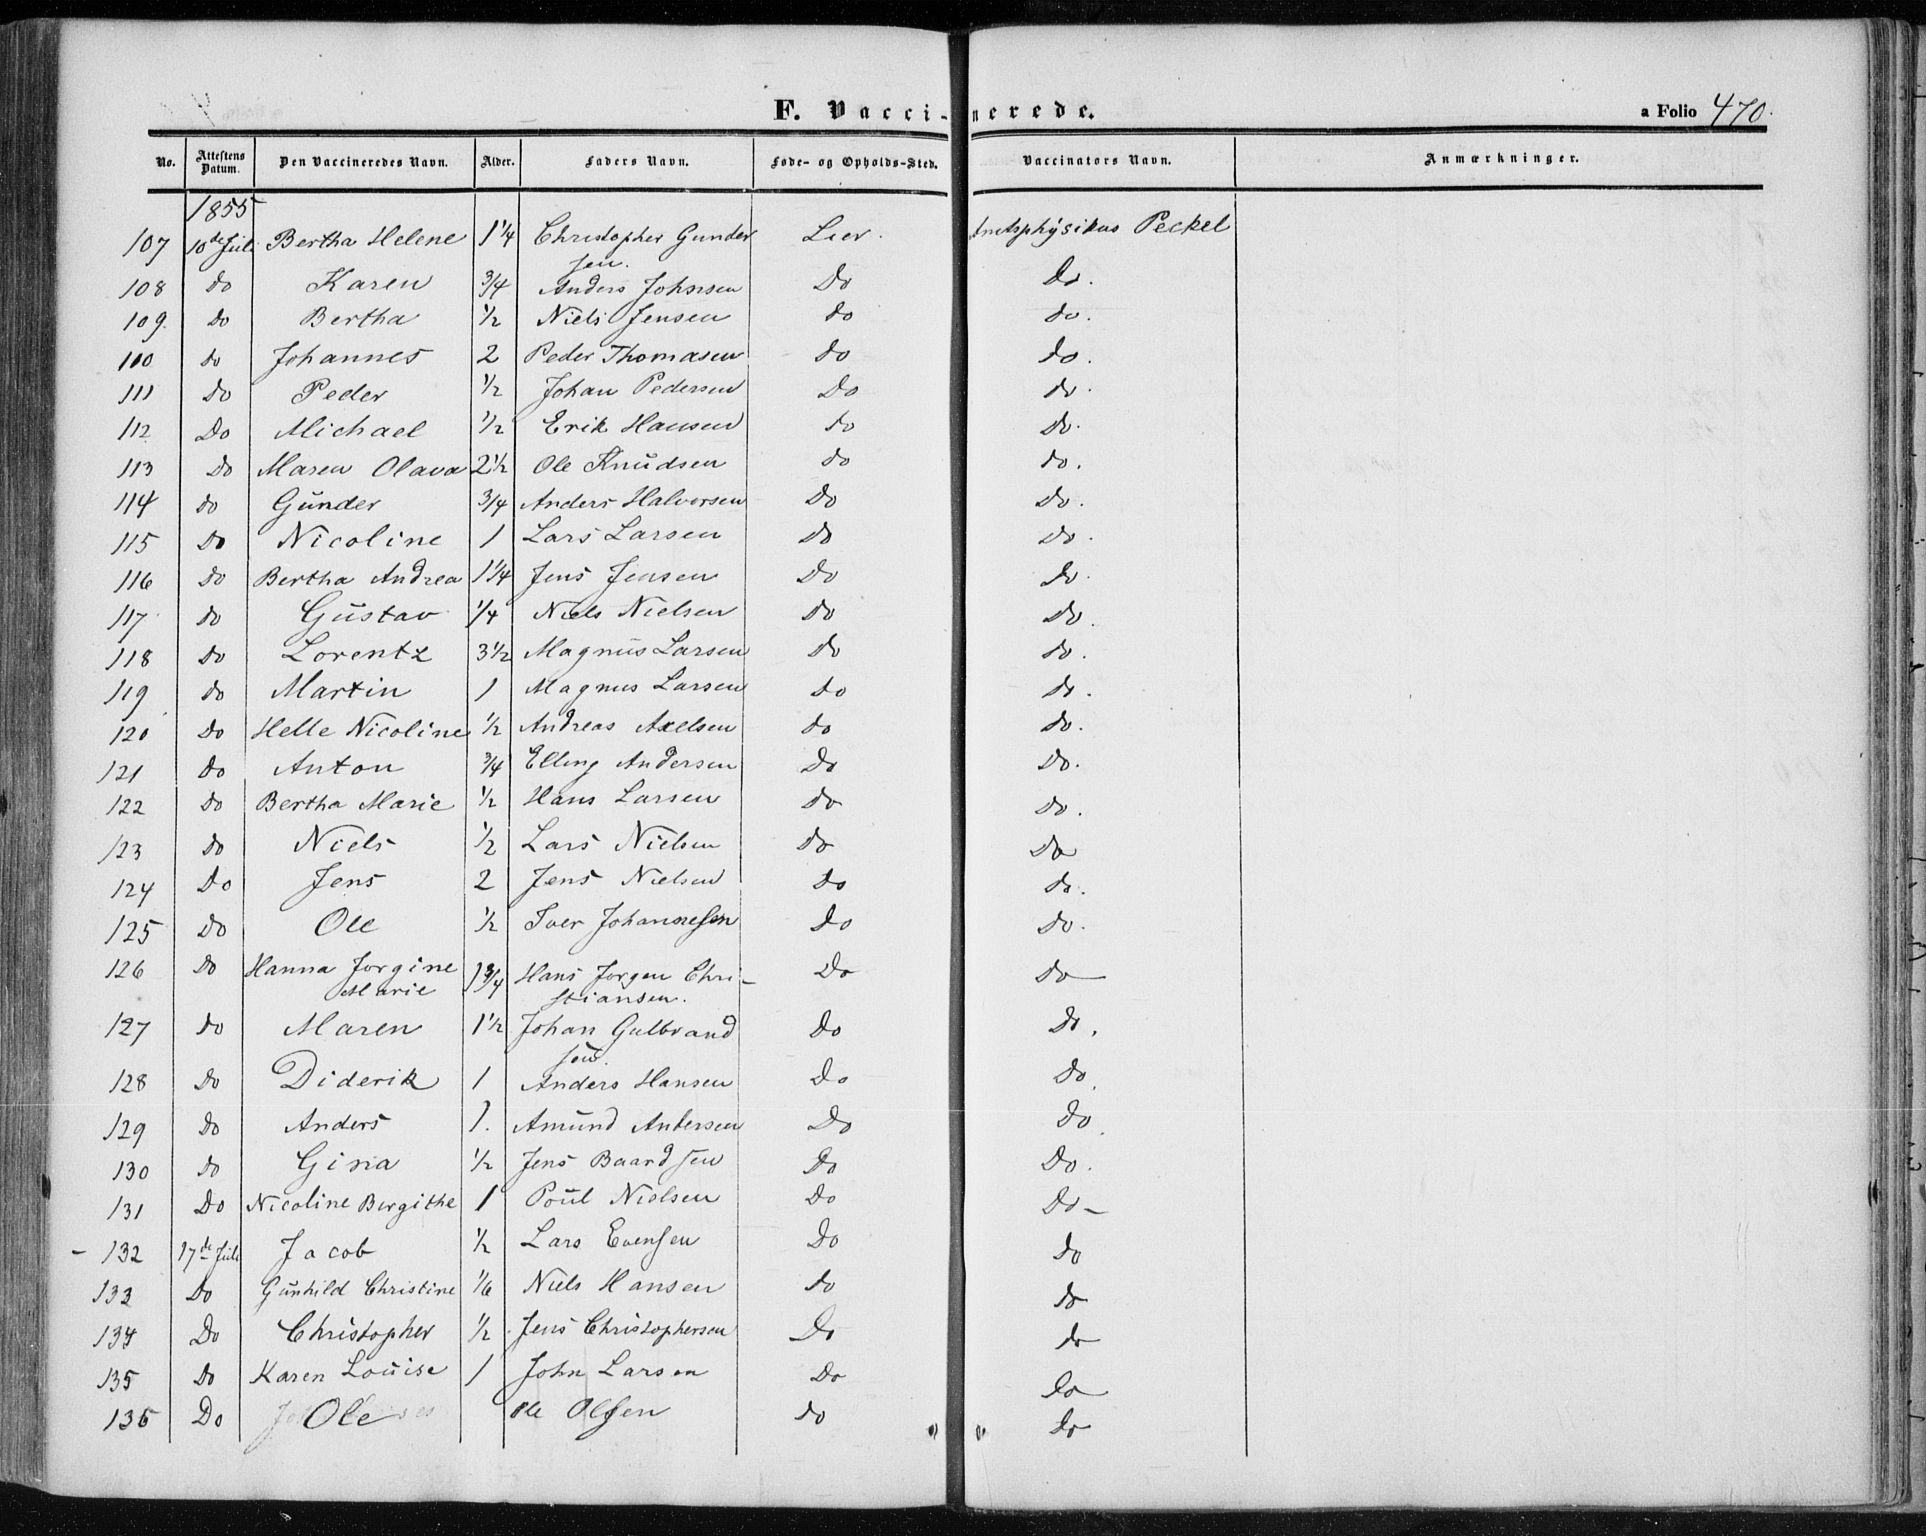 F. Vaccinerede. a Folio 470.
No. Attestens Datum. Den Vaccineredes Navn. Alder. Faders Navn. Føde- og Opholds-Sted. Vaccinators Navn. Anmærkninger.
1855
107 10de Juli Bertha Helene 1 1/4 Christopher Gundersen. Lier. Amtsphysikus Peckel
108 do Karen 3/4 Anders Johnsen Do Do.
109. Do Bertha 1/2 Niels Jensen do do.
110 do Johannes 2 Peder Thomasen do do.
111 Do Peder 1/2 Johan Pedersen Do do.
112 Do Michael 1/2 Erik Hansen do do.
113 Do Maren Olava 2 1/2 Ole Knudsen do do.
114 do Gunder 3/4 Anders Halvorsen Do Do.
115 Do Nicoline 1 Lars Larsen Do do.
116 Do Bertha Andrea 1 1/4 Jens Jensen Do do.
117. do Gustav 1/4 Niels Nielsen Do Do.
118 Do Lorentz 3 1/2 Magnus Larsen do do.
119 do Martin 1 Magnus Larsen Do do.
120 Do Helle Nicoline 1/2 Andreas Axelsen do do.
121 do Anton 3/4 Elling Andersen Do Do.
122 Do Bertha Marie 1/2 Hans Larsen do do.
123 do Niels 1/2 Lars Nielsen do Do
124 Do Jens 2 Jens Nielsen do do.
125 Do Ole 1/2 Iver Johannessen Do Do.
126 Do Hanna Jorgine Marie 1 3/4 Hans Jorgen Christiansen. Do do
127 do Maren 1 1/2 Johan Gulbrandsen. Do Do.
128 Do Diderik 1 Anders Hansen Do Do
129 Do Anders 1. Amund Andersen Do Do
130 do Gina 1/2 Jens Baardsen Do Do.
131 Do Nicoline Birgithe 1 Poul Nielsen Do Do-
- 132 17de Juli Jacob 1/2 Lars Evensen Do do
133 Do Gunhild Christine 1/6 Niels Hansen do do
134 Do Christopher 1/2 Jens Christophersen Do do
135 do Karen Louise 1 John Larsen Do Do
136 Do Ole Ole Olsen do do